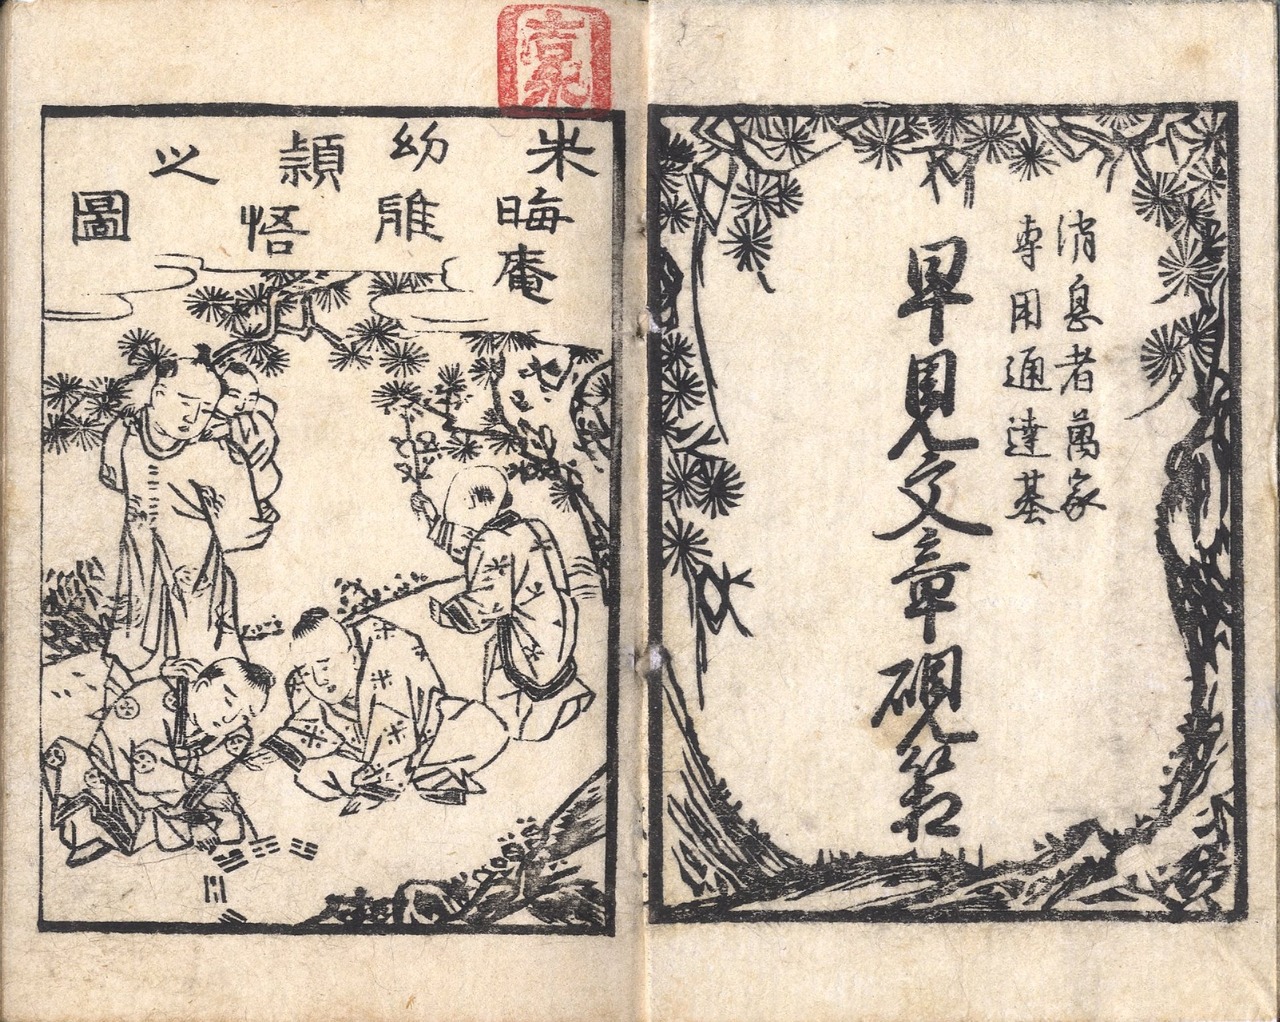 消息者萬家
専用通達基
早見文章硯箱
朱晦庵
幼雅
穎悟
之圖